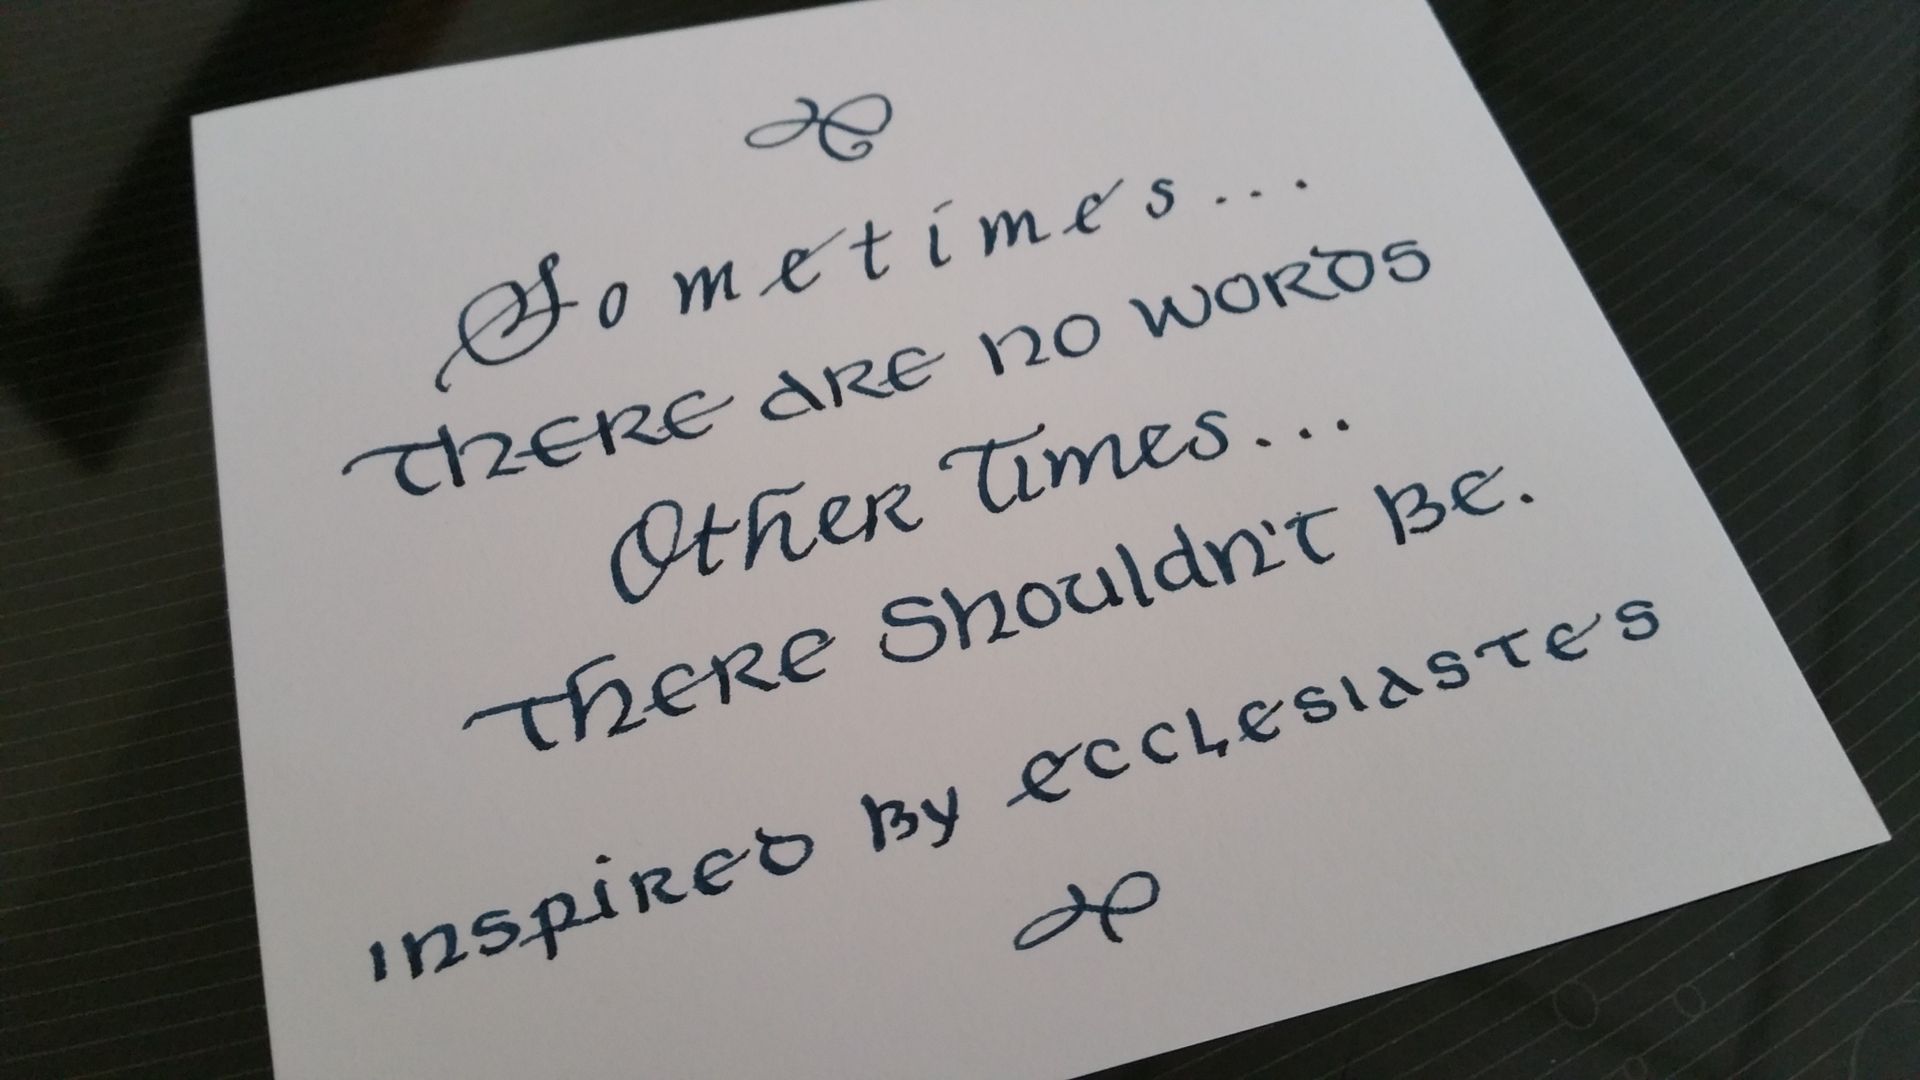 Sometimes...
THERE ARE NO WORDS
Other Times...
THERE Shouldn't Be.
INSPIRED By ECCLESIASTES